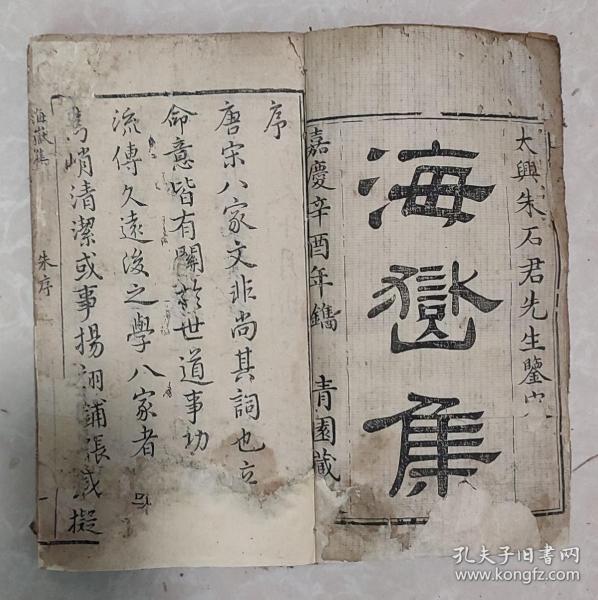 大興朱石君先生鑒定
海嶽集
嘉慶辛酉年鐫 青園藏
序
唐宋八家文非尚其詞也立
命意皆有關於世道事功
流傳久遠後之學八家者
峭清潔或事揚詡鋪張或擬
海嶽集 朱序 一
孔夫子旧书网
www.kongfz.com